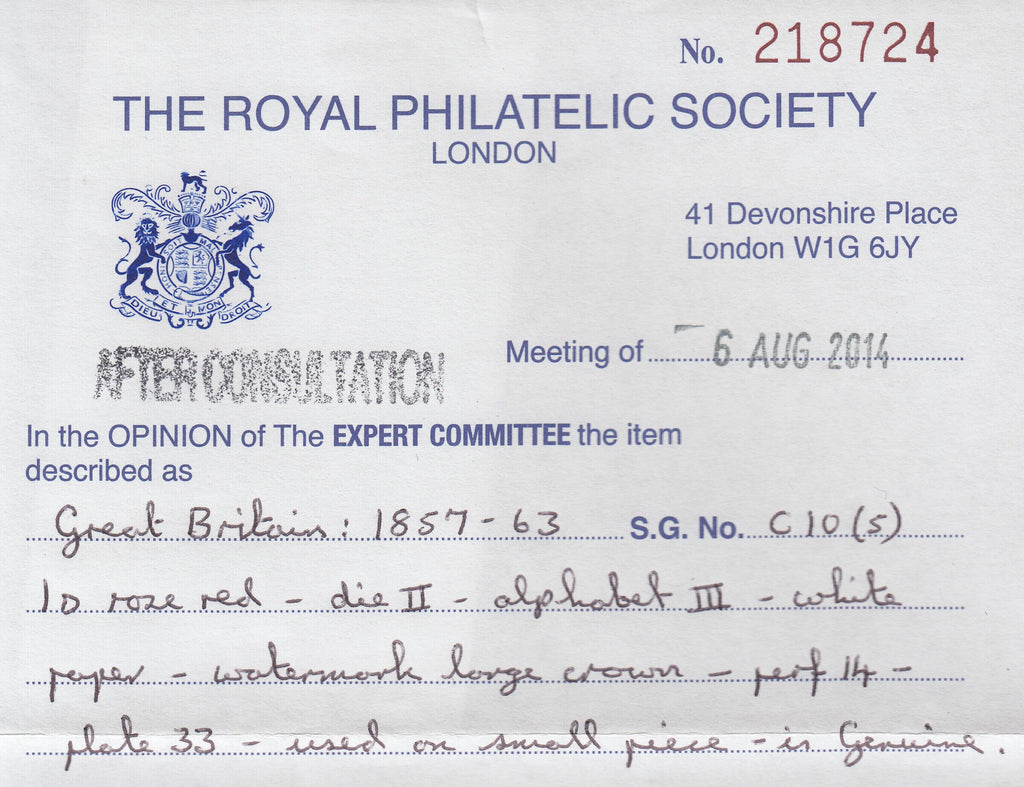 No. 218724
THE ROYAL PHILATELIC SOCIETY
LONDON
41 Devonshire Place
London W1G 6JY
HONI SOIT MAL Y PENSE
DIEU ET MON DROIT
AFTER CONSULTATION
Meeting of - 6 AUG 2014
In the OPINION of The EXPERT COMMITTEE the item
described as
Great Britain: 1857-63 S.G. No. C10(5)
1D rose red - die II - alphabet III - white
paper - watermark large crown - perf 14 -
plate 33 - used on small piece - is Genuine.